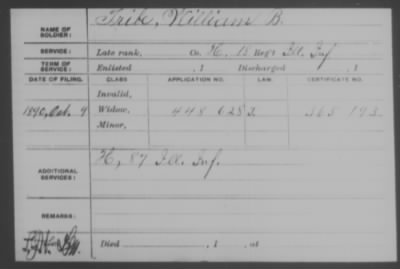 NAME OF SOLDIER: Tribe, William B.
SERVICE: Late rank, Co. H, 18 Reg't Ill. Inf
TERM OF SERVICE: Enlisted , 1 Discharged , 1
DATE OF FILING. CLASS APPLICATION NO. LAW. CERTIFICATE NO.
Invalid,
1890, Oct. 9 Widow, 448 628 365 193
Minor,
ADDITIONAL SERVICES: H, 87 Ill. Inf.
REMARKS:
Died , 1 , at